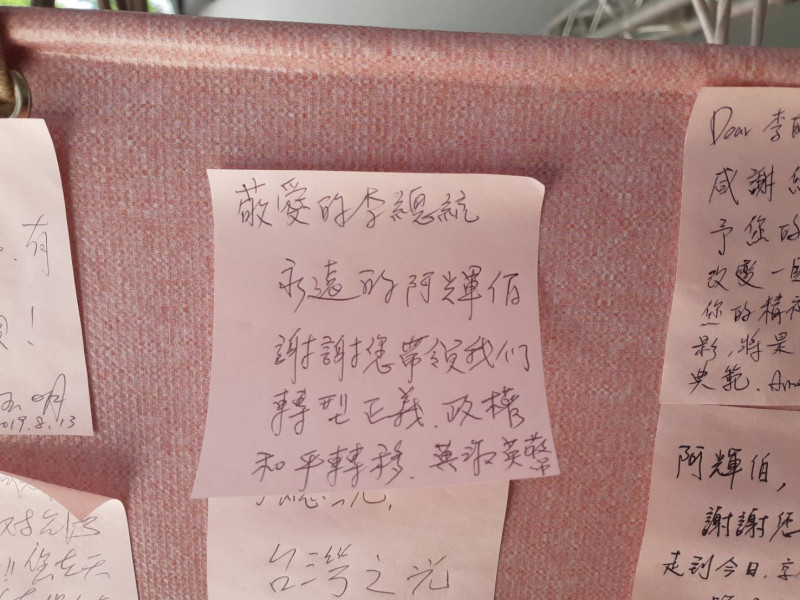 有
!
明
019.8.13
!!您在天
敬愛的李總統
永遠的阿輝伯
謝謝您帶領我们
轉型正義、政權
和平轉移.
台灣之光
Dear 李
感謝您
予您的
改變一
您的精神
影,將是
典範.
阿輝伯,
謝謝您
走到今日,